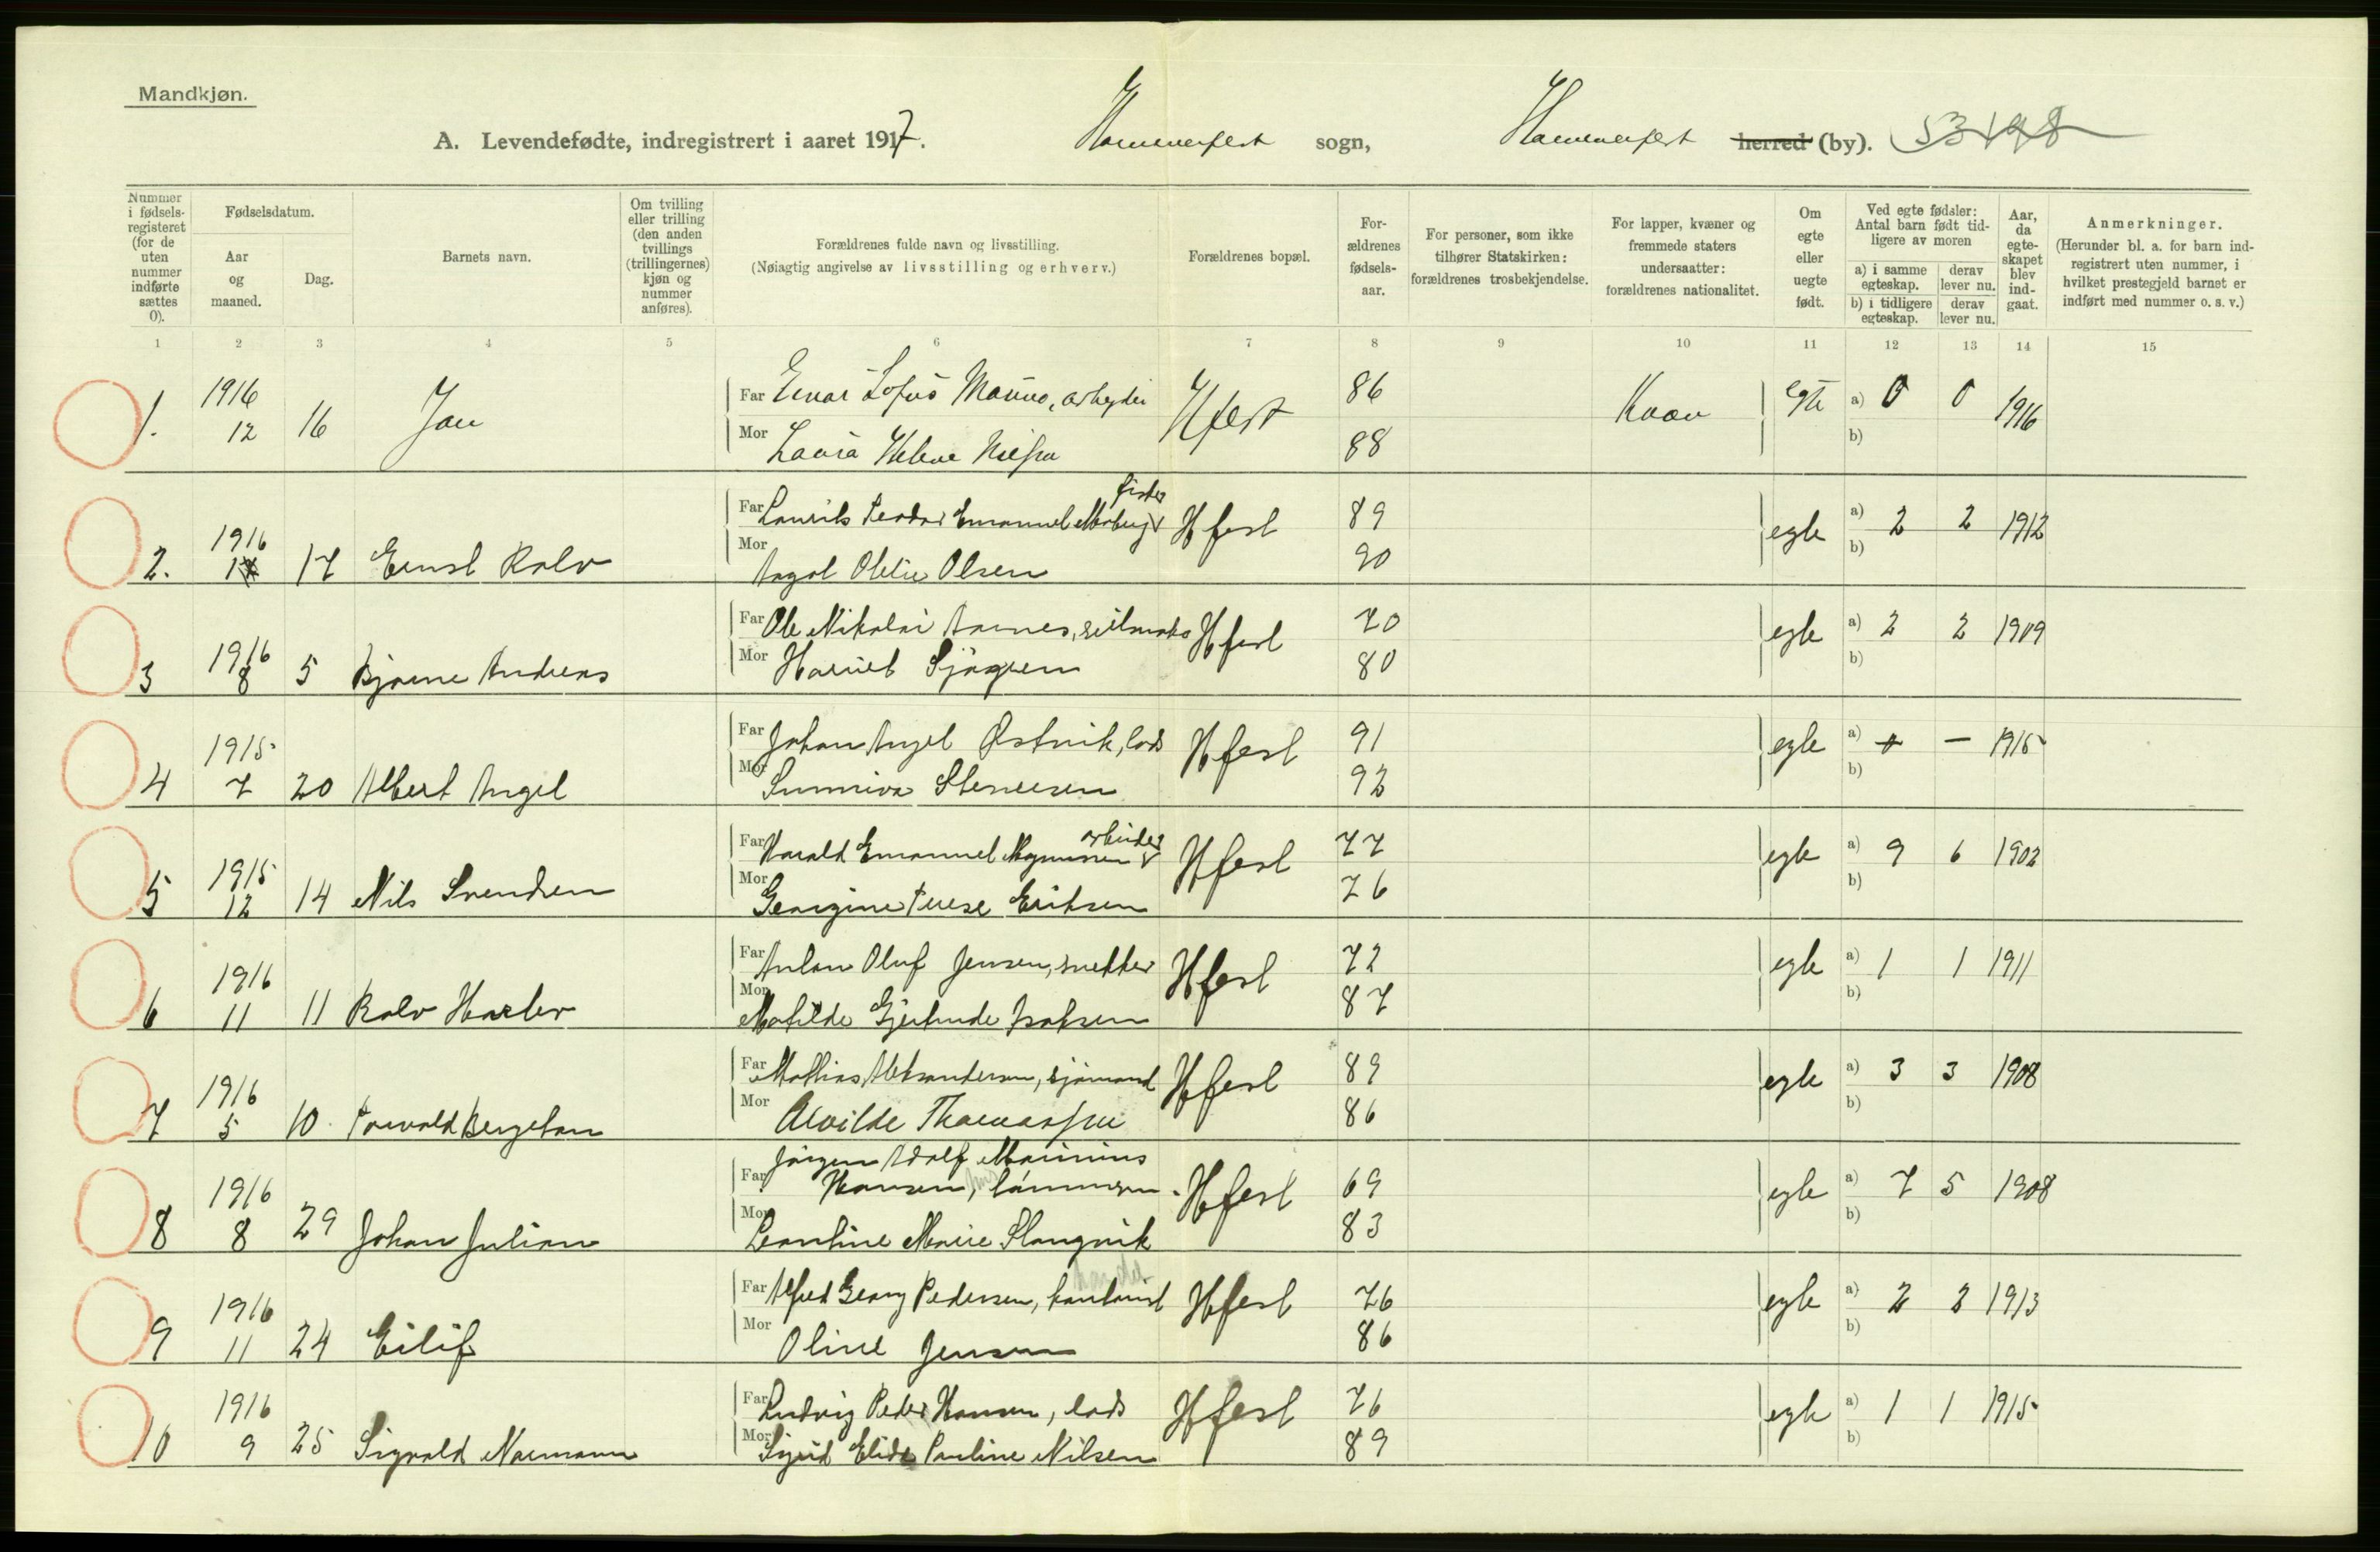 Mandkjøn.
A. Levendefødte, indregistrert i aaret 1917. Hammerfest sogn, Hammerfest herred (by).
Nummer i fødsels-registeret (for de uten nummer indførte sættes 0).
Fødselsdatum.
Aar og maaned.
Dag.
Barnets navn.
Om tvilling eller trilling (den anden tvillings (trillingernes) kjøn og nummer anføres).
Forældrenes fulde navn og livsstilling.
(Nøiagtig angivelse av livsstilling og erhverv.)
Forældrenes bopæl.
For-ældrenes fødsels-aar.
For personer, som ikke tilhører Statskirken: forældrenes trosbekjendelse.
For lapper, kvæner og fremmede staters undersaatter: forældrenes nationalitet.
Om egte eller uegte født.
Ved egte fødsler: Antal barn født tid-ligere av moren
a) i samme egteskap.
derav lever nu.
b) i tidligere egteskap.
derav lever nu.
Aar, da egte-skapet blev ind-gaat.
Anmerkninger.
(Herunder bl. a. for barn ind-registrert uten nummer, i hvilket prestegjeld barnet er indført med nummer o. s. v.)
1 2 3 4 5 6 7 8 9 10 11 12 13 14 15
1. 1916 12 16 Jan
Far Einar Sofus Manno, arbeyder Hfest 86 Kvæn egte a) 0 0 1916
Mor Laura Helene Nilssen 88 b)
2. 1916 17 Ernst Rolv
Far Laurits Teodor Emanuel Moberg fisker Hfest 89 egte a) 2 2 1912
Mor Angol Olelie Olsen 90 b)
3 1916 8 5 Bjarne Andreas
Far Ole Nikolai Aarnes, seilmaker Hfest 70 egte a) 2 2 1909
Mor Harriet Sjögren 80 b)
4 1915 7 20 Albert Angel
Far Johan Angel Østvik, lods Hfest 91 egte a) + — 1915
Mor Sunniva Stenersen 92 b)
5 1915 12 14 Nils Svendsen
Far Harald Emanuel Magnussen arbeider Hfest 77 egte a) 9 6 1902
Mor Georgine Terese Eriksen 76 b)
6 1916 11 11 Rolv Harlev
Far Anton Oluf Jensen, snekker Hfest 72 egte a) 1 1 1911
Mor Matilde Gjertrude Isaksen 87 b)
7 1916 5 10 Torvald Bergeton
Far Mathias Aleksandersen, sjömand Hfest 89 egte a) 3 3 1908
Mor Alvilde Thomassen 86 b)
8 1916 8 29 Johan Julian
Far Jörgen Adolf Marinius Hansen, Hfest 69 egte a) 7 5 1908
Mor Leontine Marie Slangvik 83 b)
9 1916 11 24 Eilif
Far Alfred Georg Pedersen, kontorist Hfest 76 egte a) 2 2 1913
Mor Oline Jensen 86 b)
10 1916 9 25 Sigvald Normann
Far Ludvig Peder Hansen, lods Hfest 76 egte a) 1 1 1915
Mor Sigrid Elide Pauline Nilsen 89 b)